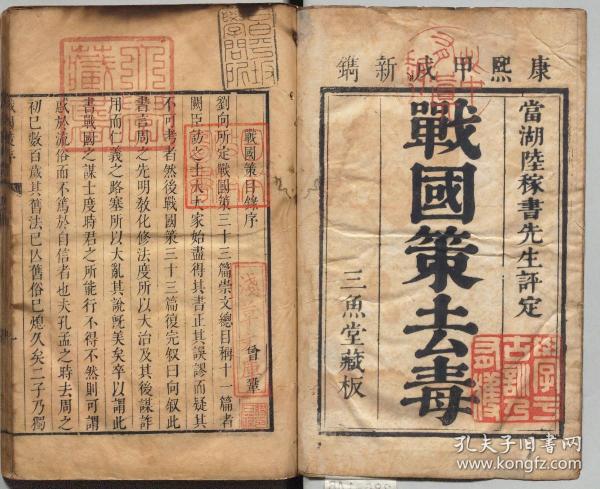 康熙甲戌新鐫
當湖陸稼書先生評定
戰國策去毒
三魚堂藏板
學于
古訓乃
有獲
戰國策目錄序
曾鞏
劉向所定戰國策三十三篇崇文總目稱十一篇者
闕臣訪之士大夫家始盡得其書正其誤謬而疑其
不可考者然後戰國策三十三篇復完叙曰向叙此
書言周之先明敎化修法度所以大治及其後謀詐
用而仁義之路塞所以大亂其說旣美矣卒以謂此
書戰國之謀士度時君之所能行不得不然則可謂
惑於流俗而不篤於自信者也夫孔孟之時去周之
初已數百歲其舊法已亡舊俗已熄久矣二子乃獨
淺草文庫
孔夫子旧书网
www.kongfz.com